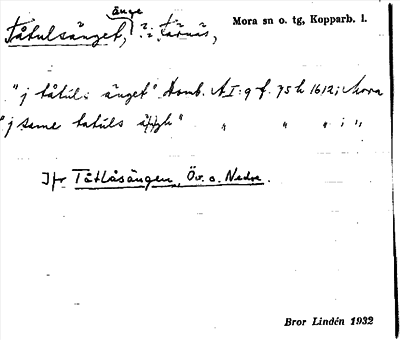 änge
Tåtulsänget, ?: Färnäs, Mora sn o. tg, Kopparb. l.
"j tåtul: änget" Domb. AI:9 f. 75 h 1612; Mora
"j same tatuls ängh" " " " ; "
Jfr Tåtlåsängen, Öv. o. Nedre.
Bror Lindén 1932